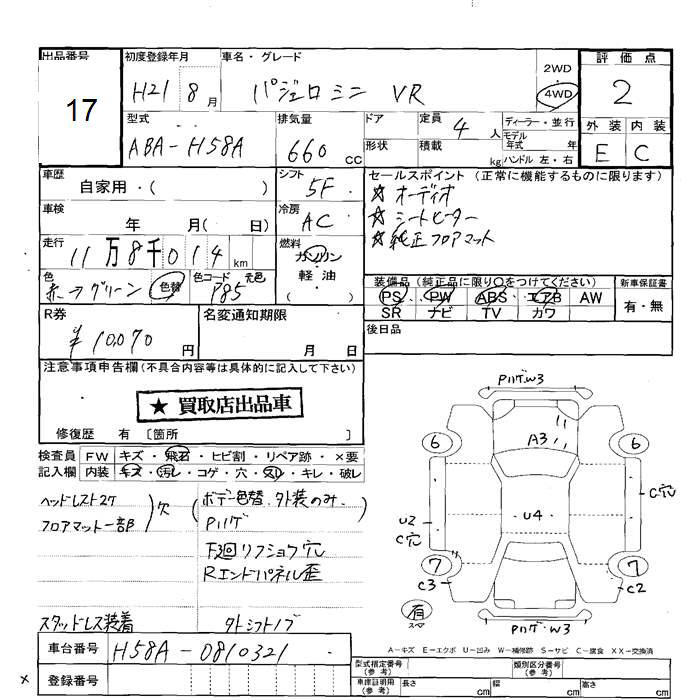 出品番号 初度登録年月 車名・グレード 評価点
17 H21 8月 パジェロミニ VR 2WD 4WD 2
型式 排気量 ドア 定員 ディーラー・並行 外装 内装
ABA-H58A 660cc 4人 モデル年式 年 E C
形状 積載 kg ハンドル 左・右
車歴 シフト セールスポイント (正常に機能するものに限ります)
自家用・( ) 5F ☆オーディオ
車検 年 月( 日) 冷房 AC ☆シートヒーター
走行 11万8千014km 燃料 ガソリン ☆純正フロアマット
色 赤→グリーン 色替 色コード 元色 P85 軽油 ( )
装備品 (純正品に限り○をつけてください) 新車保証書
PS PW ABS エアB AW 有・無
SR ナビ TV カワ
R券 ¥10,070円 名変通知期限 月 日 後日品
注意事項申告欄(不具合内容等は具体的に記入して下さい)
★ 買取店出品車
修復歴 有 [箇所 ]
検査員 FW キズ・飛石・ヒビ割・リペア跡・×要
記入欄 内装 キズ・汚れ・コゲ・穴・スレ・キレ・破レ
ヘッドレスト2ケ 欠 (ボデー色替、外装のみ、
フロアマット一部 Pハゲ
リフショウ穴
Rエンドパネル歪
スタッドレス装着 外シフトノブ
Pハゲ・W3
A3
6 6
C穴
U2 U4
C穴
7 7
C3 C2
有
スペア
Pハゲ・W3
A―キズ E―エクボ U―凹み W―補修跡 S―サビ C―腐食 XX―交換済
車台番号 H58A-0810321
登録番号
型式指定番号 (参考) 類別区分番号 (参考)
車庫証明用 (参考) 長さ cm 幅 cm 高さ cm
x